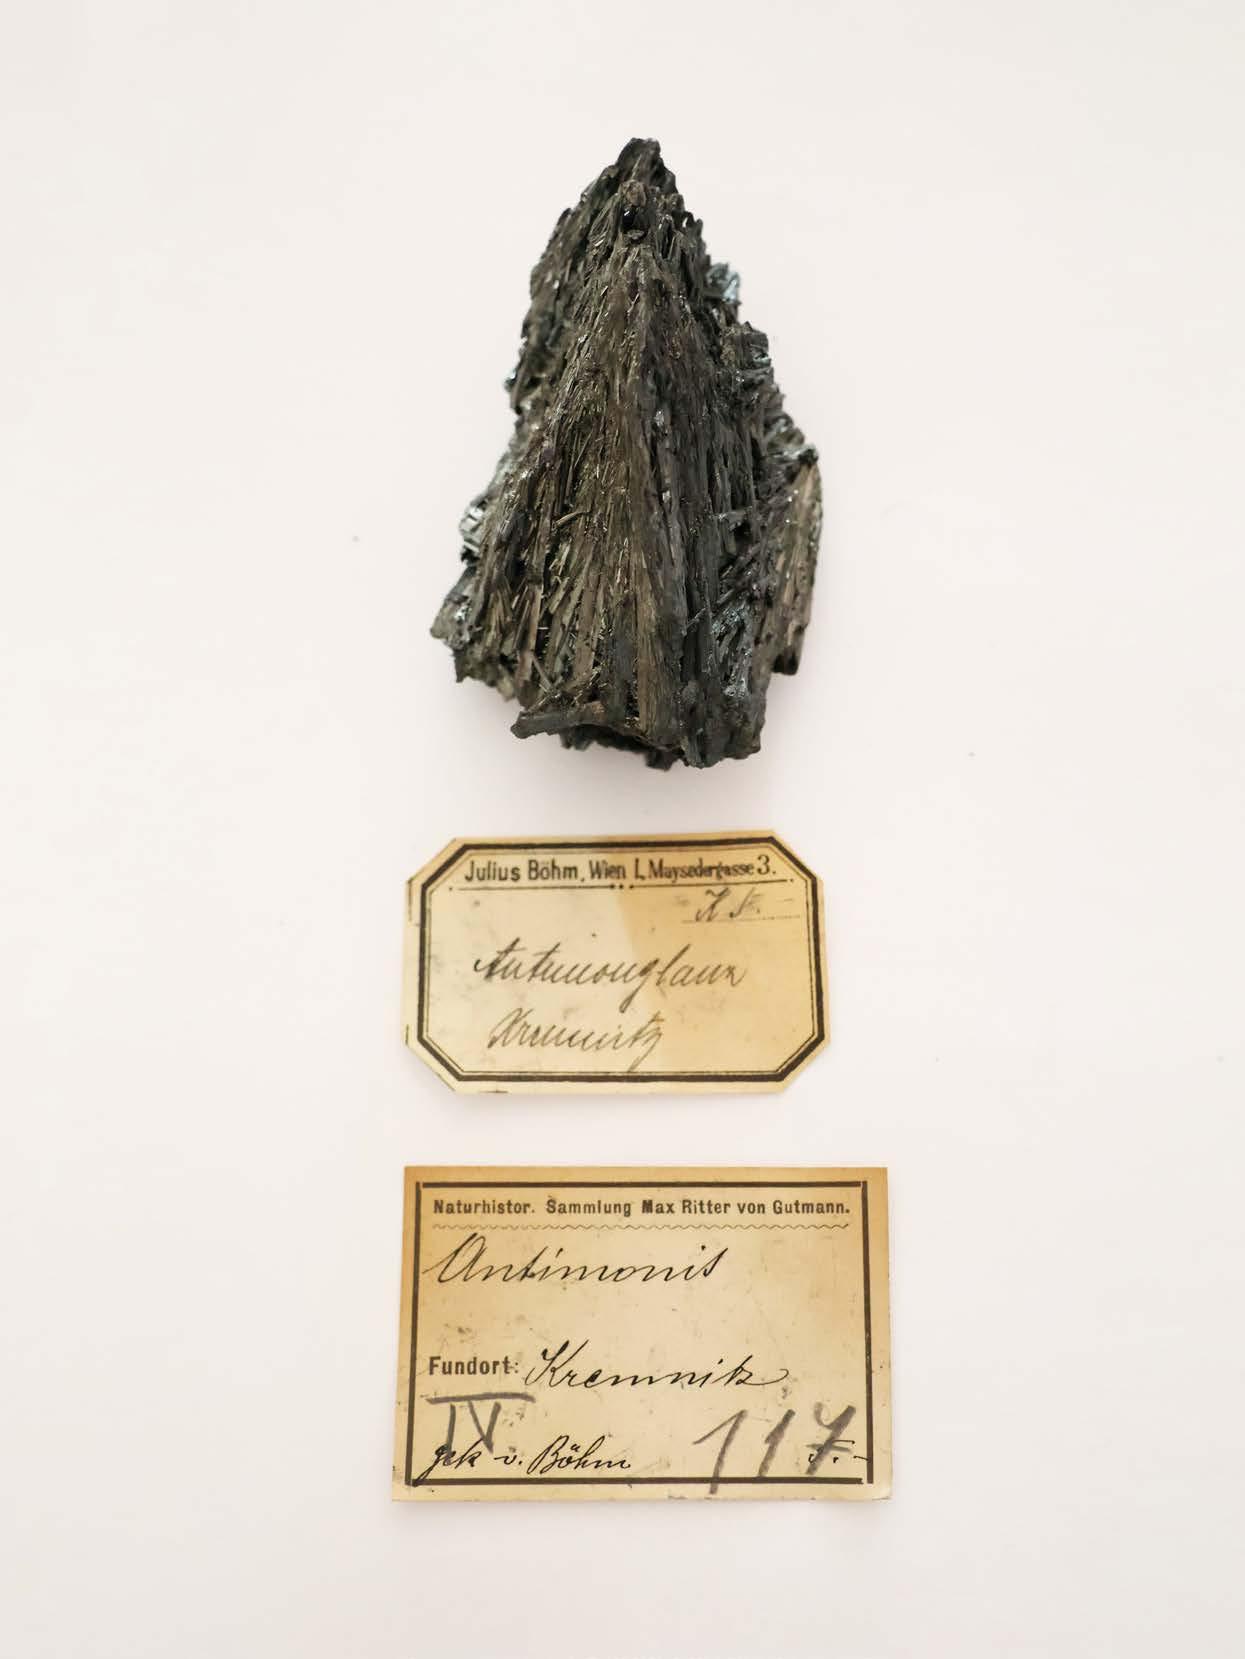 Julius Böhm, Wien I., Maysedergasse 3.
K 5.-
Antimonglanz
Kremnitz
Naturhistor. Sammlung Max Ritter von Gutmann.
Antimonit
Fundort: Kremnitz
IV 117
gek v. Böhm 5.-